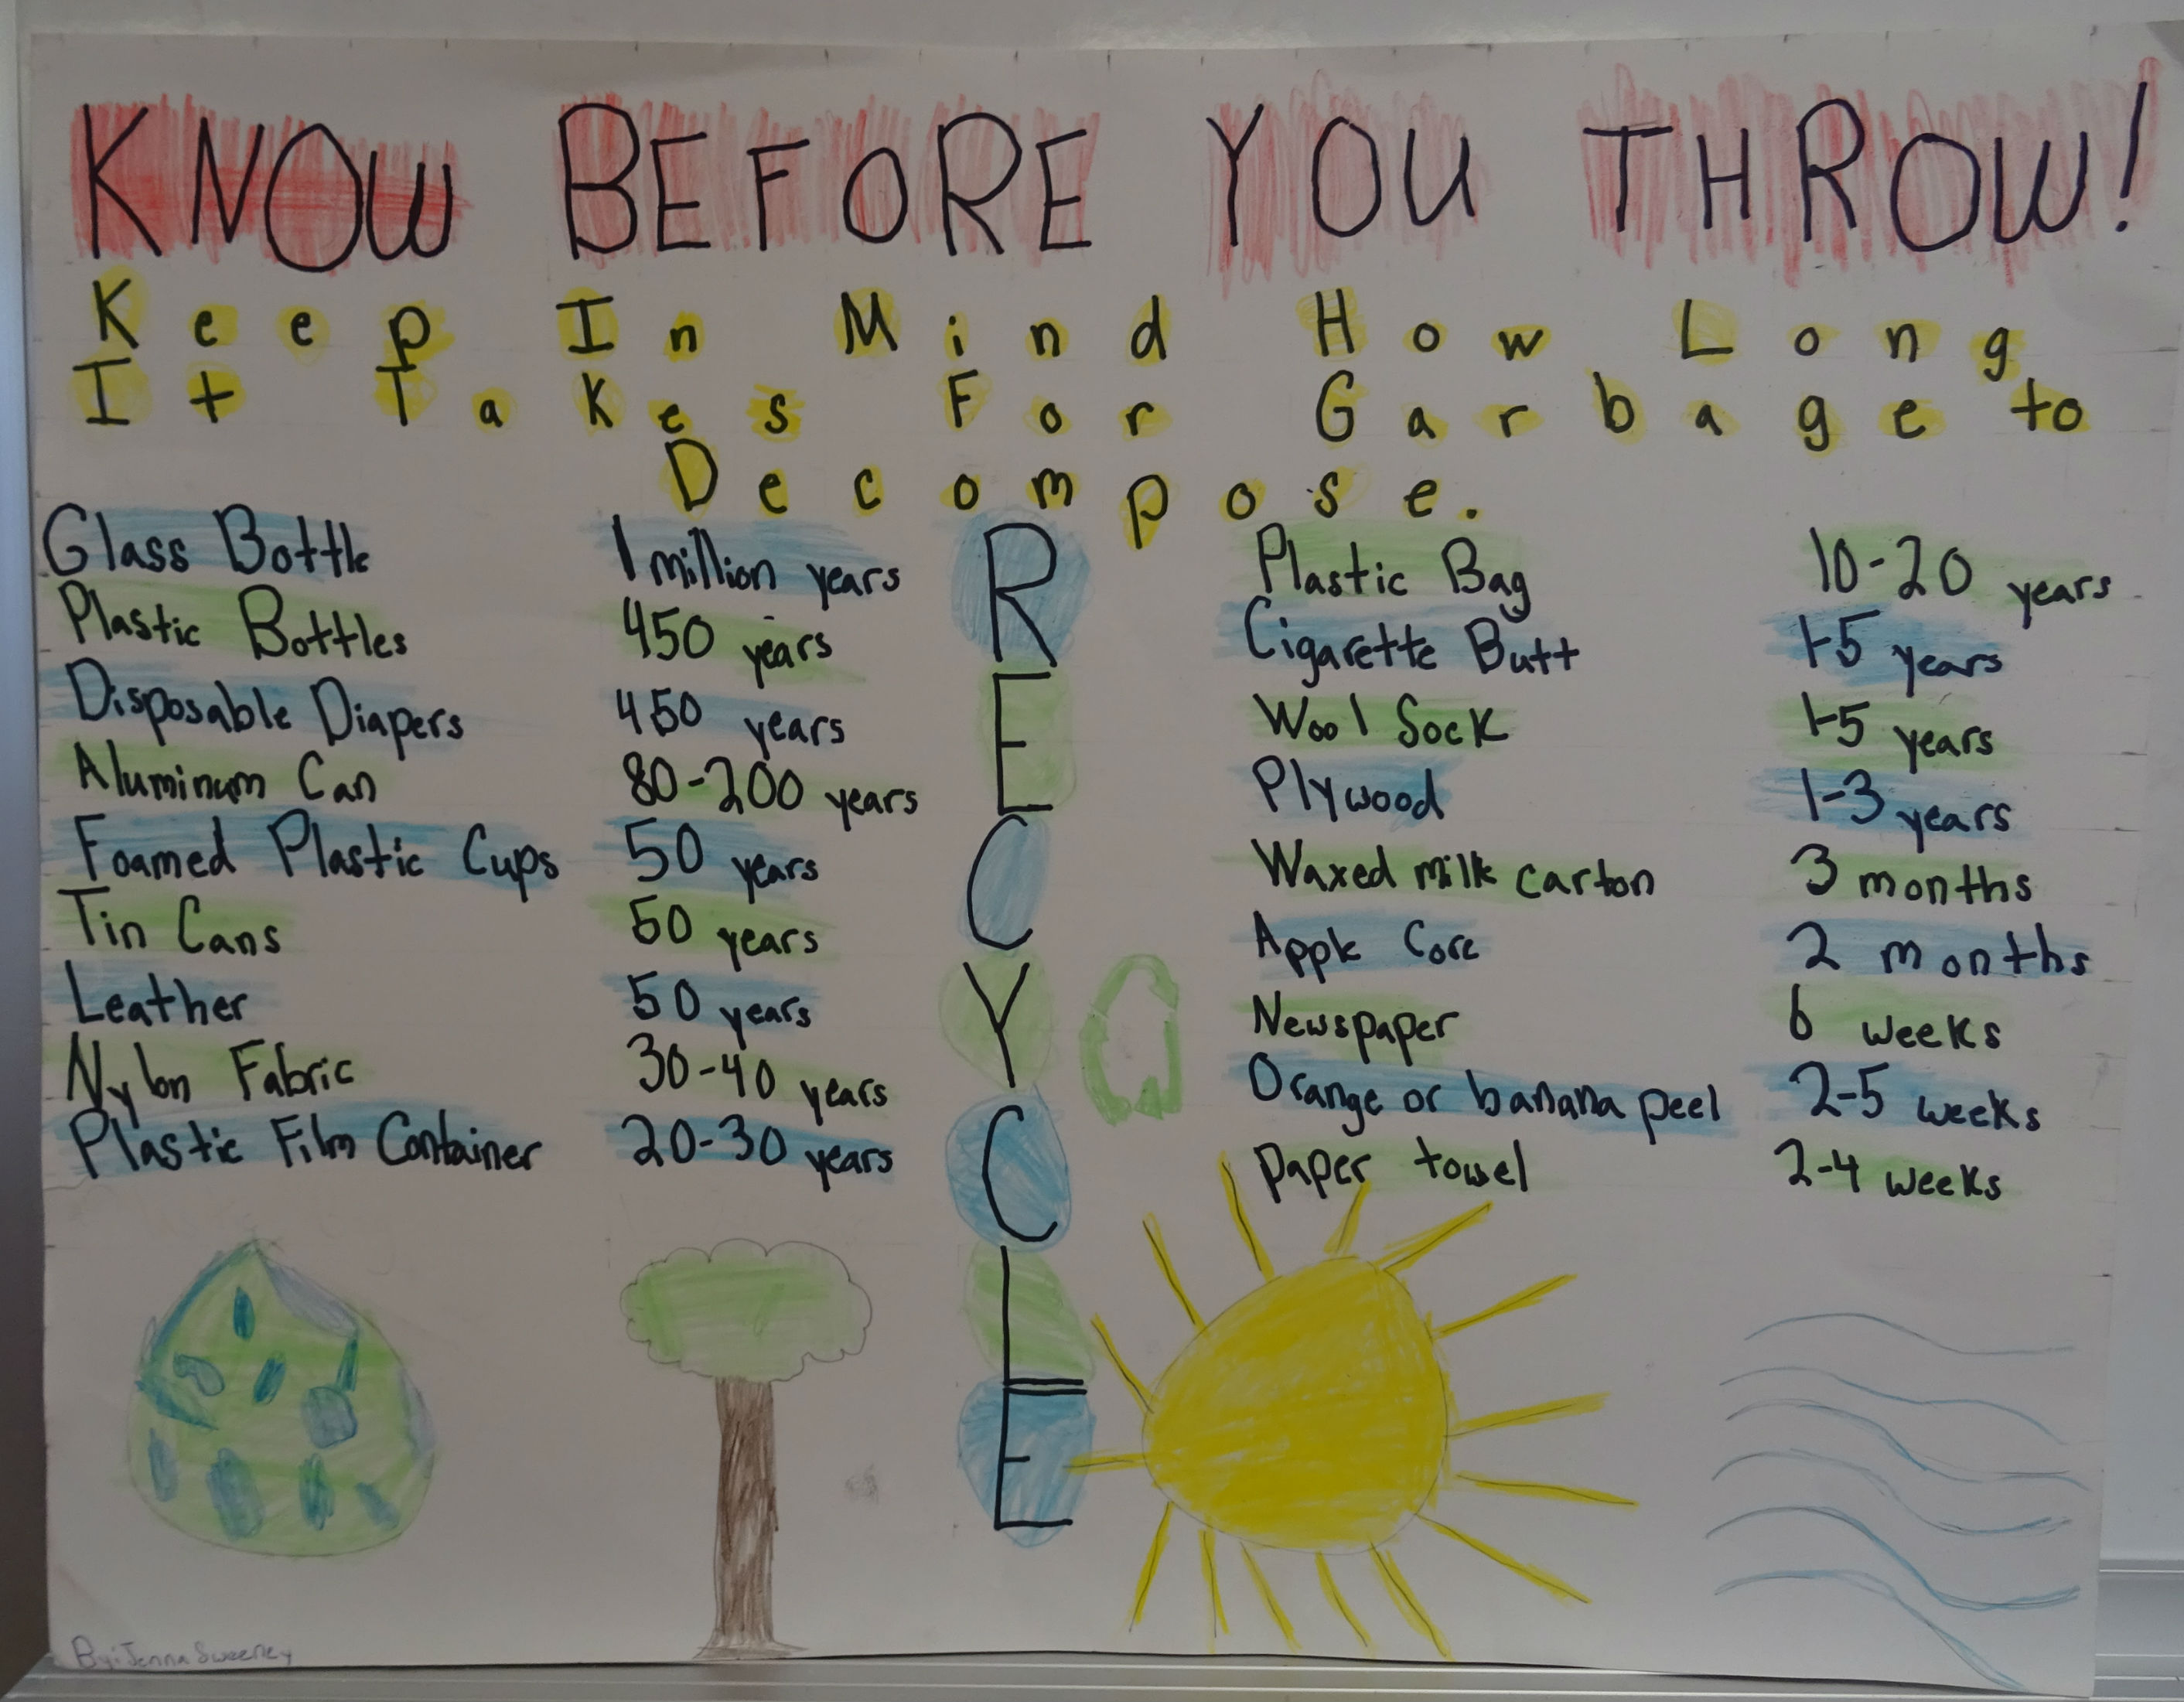 KNOW BEFORE YOU THROW!
Keep In Mind How Long
It Takes For Garbage to
Decompose.
Glass Bottle 1 million years
Plastic Bottles 450 years
Disposable Diapers 450 years
Aluminum Can 80-200 years
Foamed Plastic Cups 50 years
Tin Cans 50 years
Leather 50 years
Nylon Fabric 30-40 years
Plastic Film Container 20-30 years
RECYCLE
Plastic Bag 10-20 years
Cigarette Butt 1-5 years
Wool Sock 1-5 years
Plywood 1-3 years
Waxed milk carton 3 months
Apple Core 2 months
Newspaper 6 weeks
Orange or banana peel 2-5 weeks
paper towel 2-4 weeks
By: Jenna Sweeney